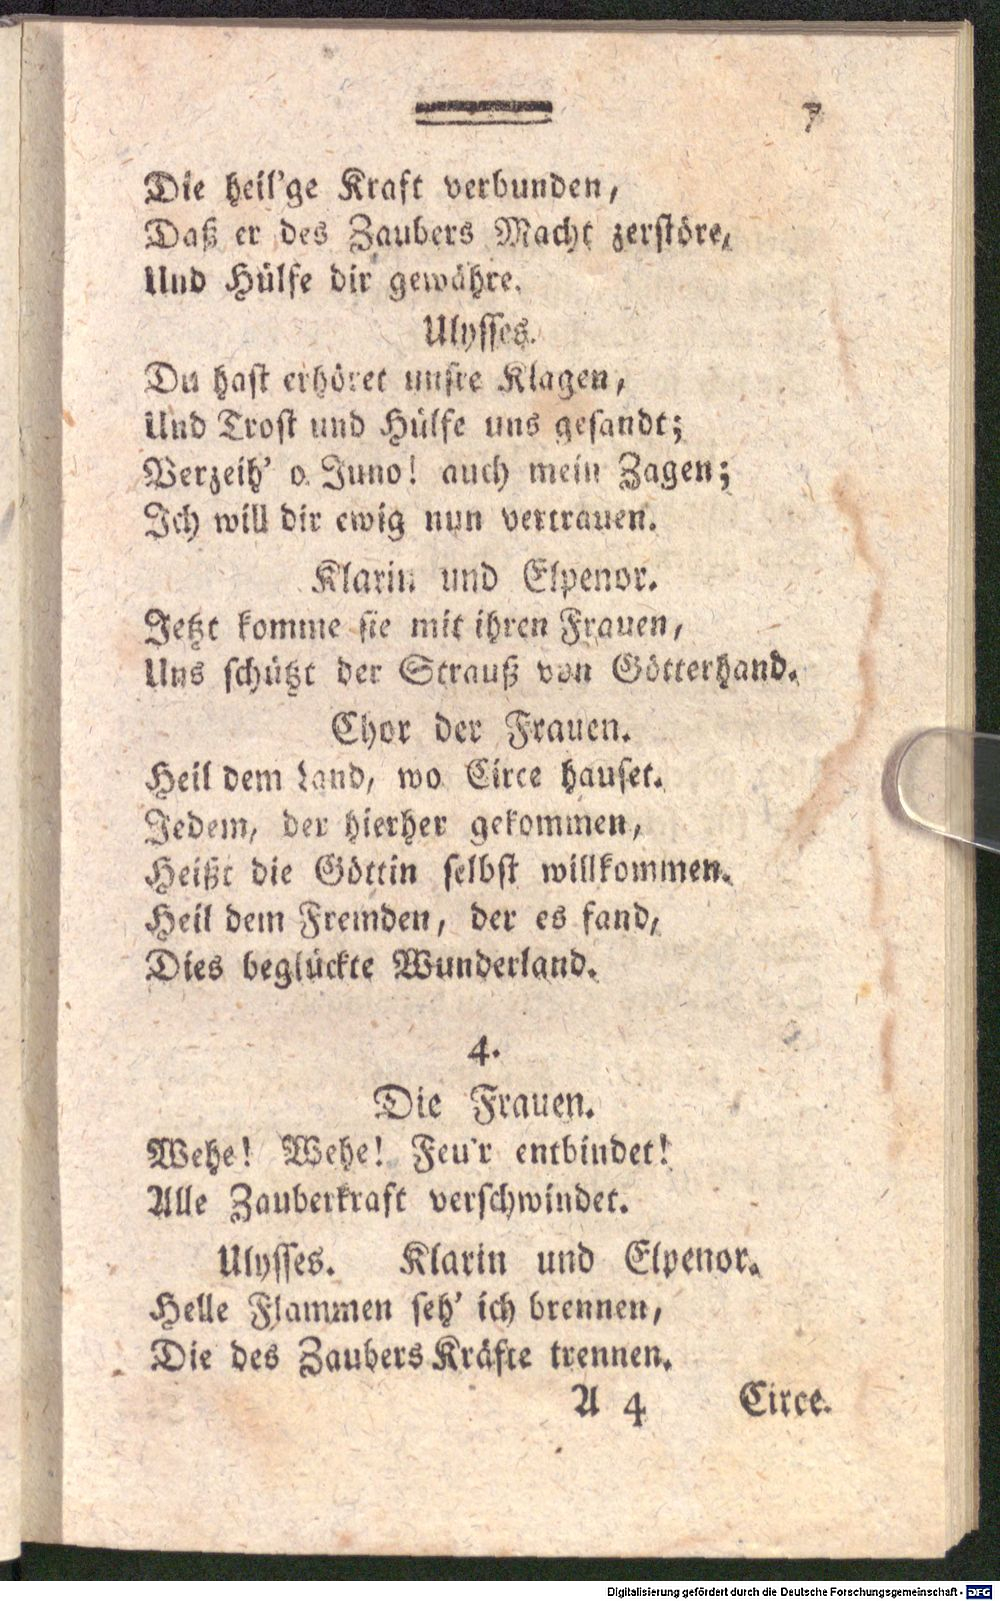 7
Die heil'ge Kraft verbunden,
Daß er des Zaubers Macht zerstöre,
Und Hülfe dir gewähre.
Ulysses.
Du hast erhöret unsre Klagen,
Und Trost und Hülfe uns gesandt;
Verzeih' o Juno! auch mein Zagen;
Ich will dir ewig nun vertrauen.
Klarin und Elpenor.
Jetzt komme sie mit ihren Frauen,
Uns schützt der Strauß von Götterhand.
Chor der Frauen.
Heil dem Land, wo Circe hauset.
Jedem, der hierher gekommen,
Heißt die Göttin selbst willkommen.
Heil dem Fremden, der es fand,
Dies beglückte Wunderland.
4.
Die Frauen.
Wehe! Wehe! Feu'r entbindet!
Alle Zauberkraft verschwindet.
Ulysses. Klarin und Elpenor.
Helle Flammen seh' ich brennen,
Die des Zaubers Kräfte trennen.
A 4 Circe.
Digitalisierung gefördert durch die Deutsche Forschungsgemeinschaft - DFG